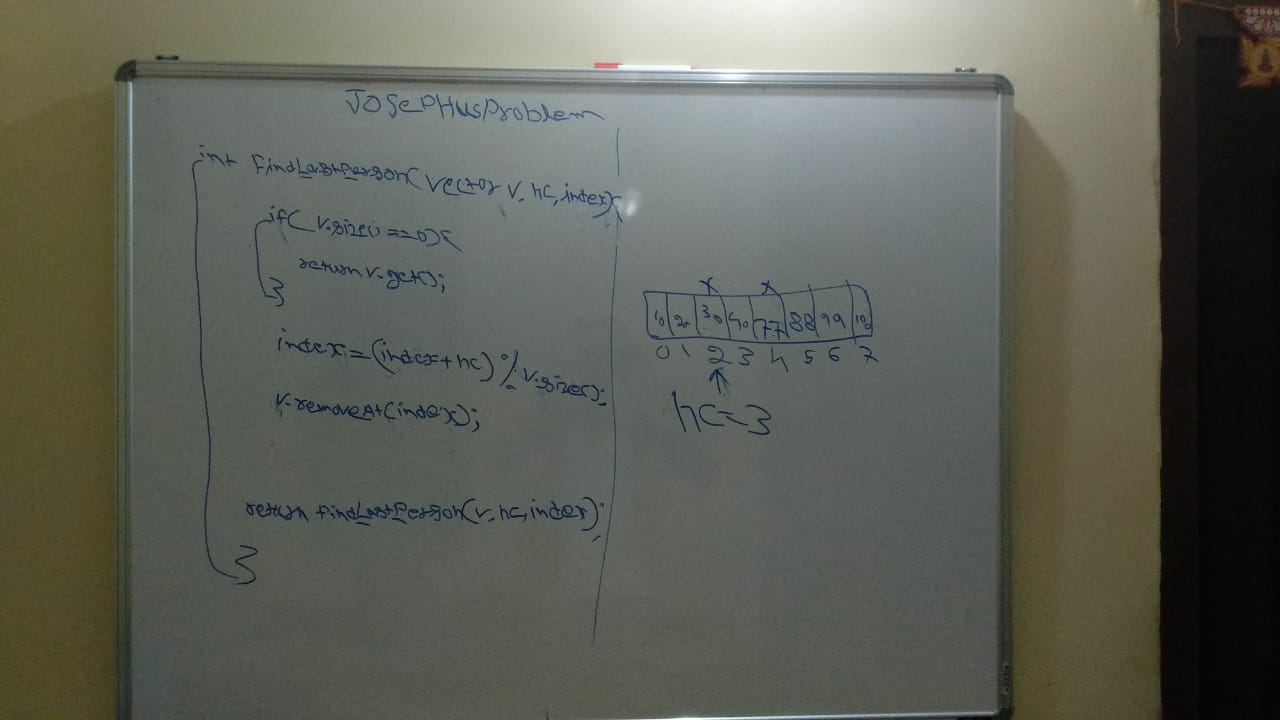 JOSePHusProblem
int findLastPerson(Vector v, hc, index){
if( v.size() ==0){
return v.get();
}
index=(index+hc) % v.size();
v.removeAt(index);
return findLastPerson(v, hc, index);
}
x x
10 20 30 40 77 88 99 100
0 1 2 3 4 5 6 7
hc=3